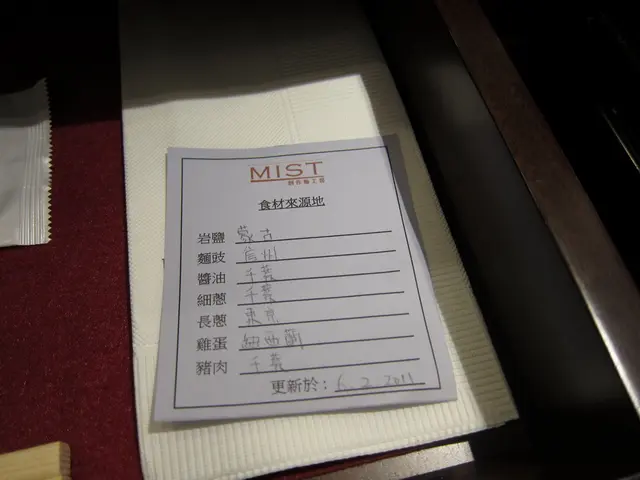 MIST
創作麵工房
食材來源地
岩鹽 蒙古
麵豉 信州
醬油 千葉
細蔥 千葉
長蔥 東京
雞蛋
豬肉 千葉
更新於: 6.2.2011